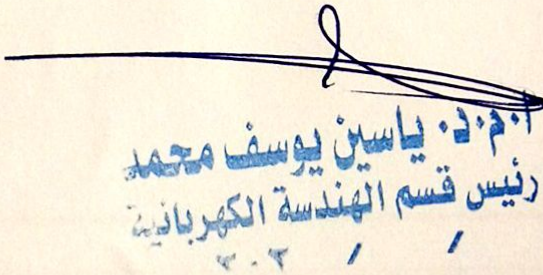 أ.م.د. ياسين يوسف محمد
رئيس قسم الهندسة الكهربائية
/ / ٢٠٢